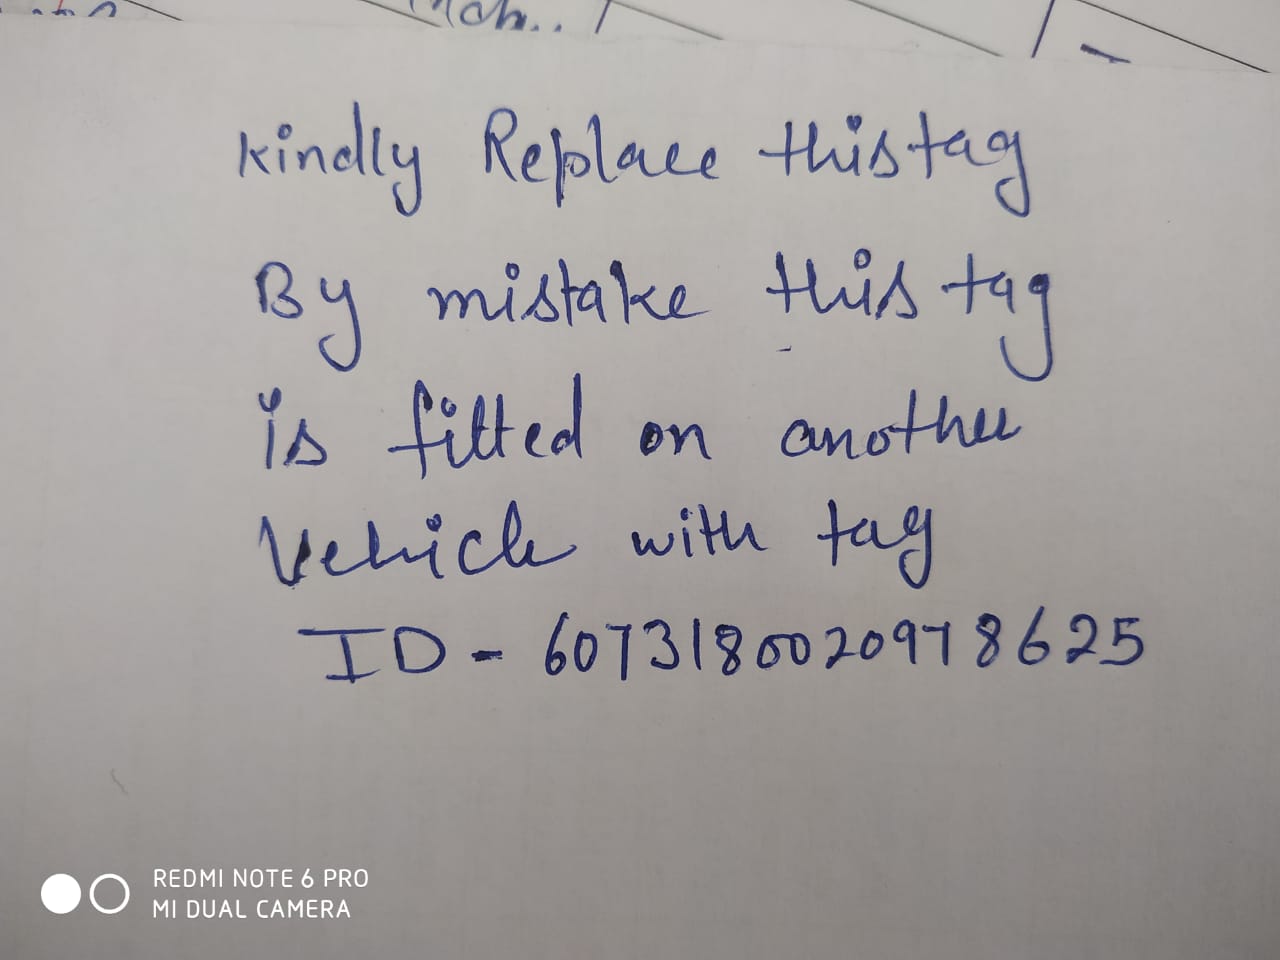 nch..
Kindly Replace this tag
By mistake this tag
is fitted on another
Vehicle with tag
ID - 6073180020978625
REDMI NOTE 6 PRO
MI DUAL CAMERA